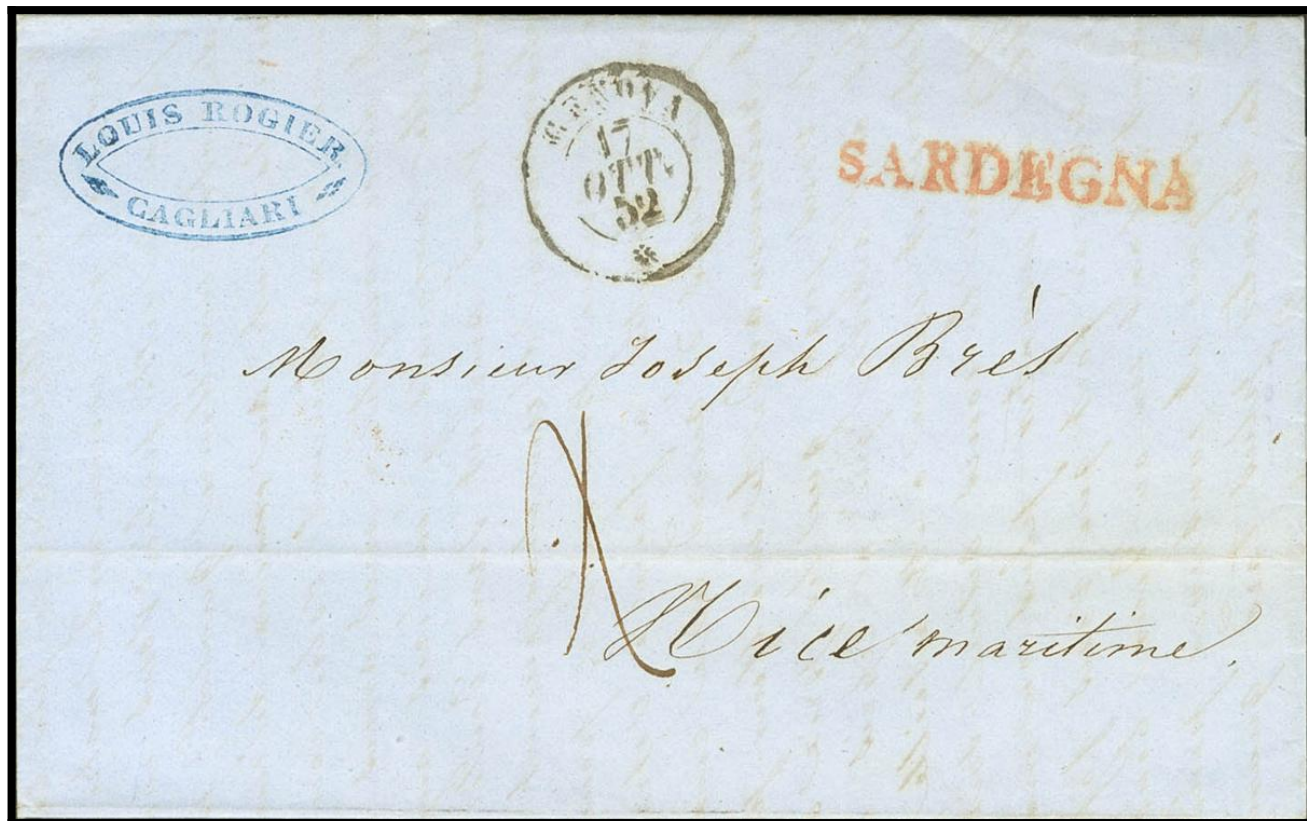 LOUIS ROGIER
CAGLIARI
GENOVA
17
OTT.
52
SARDEGNA
Monsieur Joseph Brès
Nice maritime.